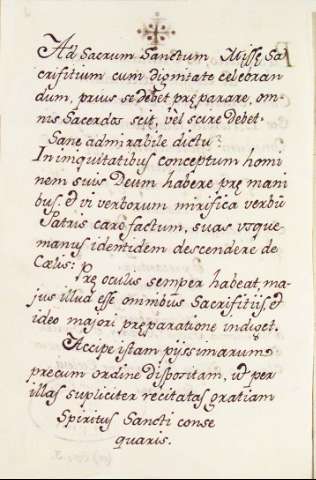 Ad Sacrum Sanctum Missę Sa
crifitium cum dignitate celebran
dum, prius se debet pręparare, om-
nis Sacerdos scit, vel scire debet.
Sane admirabile dictu!
In iniquitatibus conceptum homi
nem suis Deum habere prę mani
bus, et vi verborum mirifica verbũ
Patris caro factum, suas usque
manus identidem descendere de
Cælis:
Prę oculus semper habeat, ma-
jus illud esse omnibus Sacrifitiis, et
ideo majori pręparatione indiget.
Accipe istam pijssimarum
precum ordine dispositam, ut per
illas supliciter recitatas gratiam
Spiritus Sancti conse
quaris.